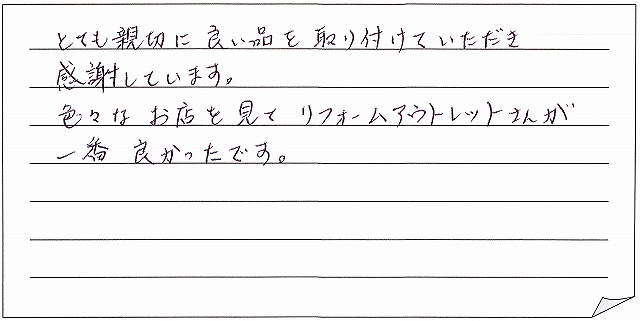 とても親切に良い品を取り付けていただき
感謝しています。
色々なお店を見てリフォームアウトレットさんが
一番良かったです。